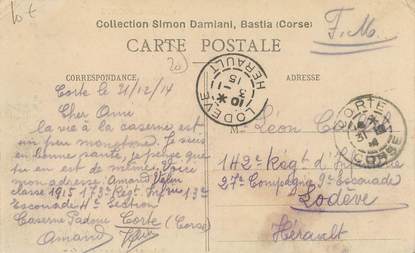 10€
Collection Simon Damiani, Bastia (Corse)
F.M.
CARTE POSTALE
20
CORRESPONDANCE.
ADRESSE
Corte le 31/12/14
Cher Ami
la vie à la caserne est
un peu monotone. Je suis
en bonne santé, je pense que
tu en est de même. Voire
mon adresse: Amand
classe 1915 173e Régt Infrie 13e
Escouade 4e Section
Caserne Padoue Corte (Corse)
Amand
LODÈVE
HÉRAULT
10 *
3 - 1
15
CORTE
31
CORSE
M. Léon
142e Régt d'Infanterie
27e Compagnie 9e Escouade
Lodève
Hérault